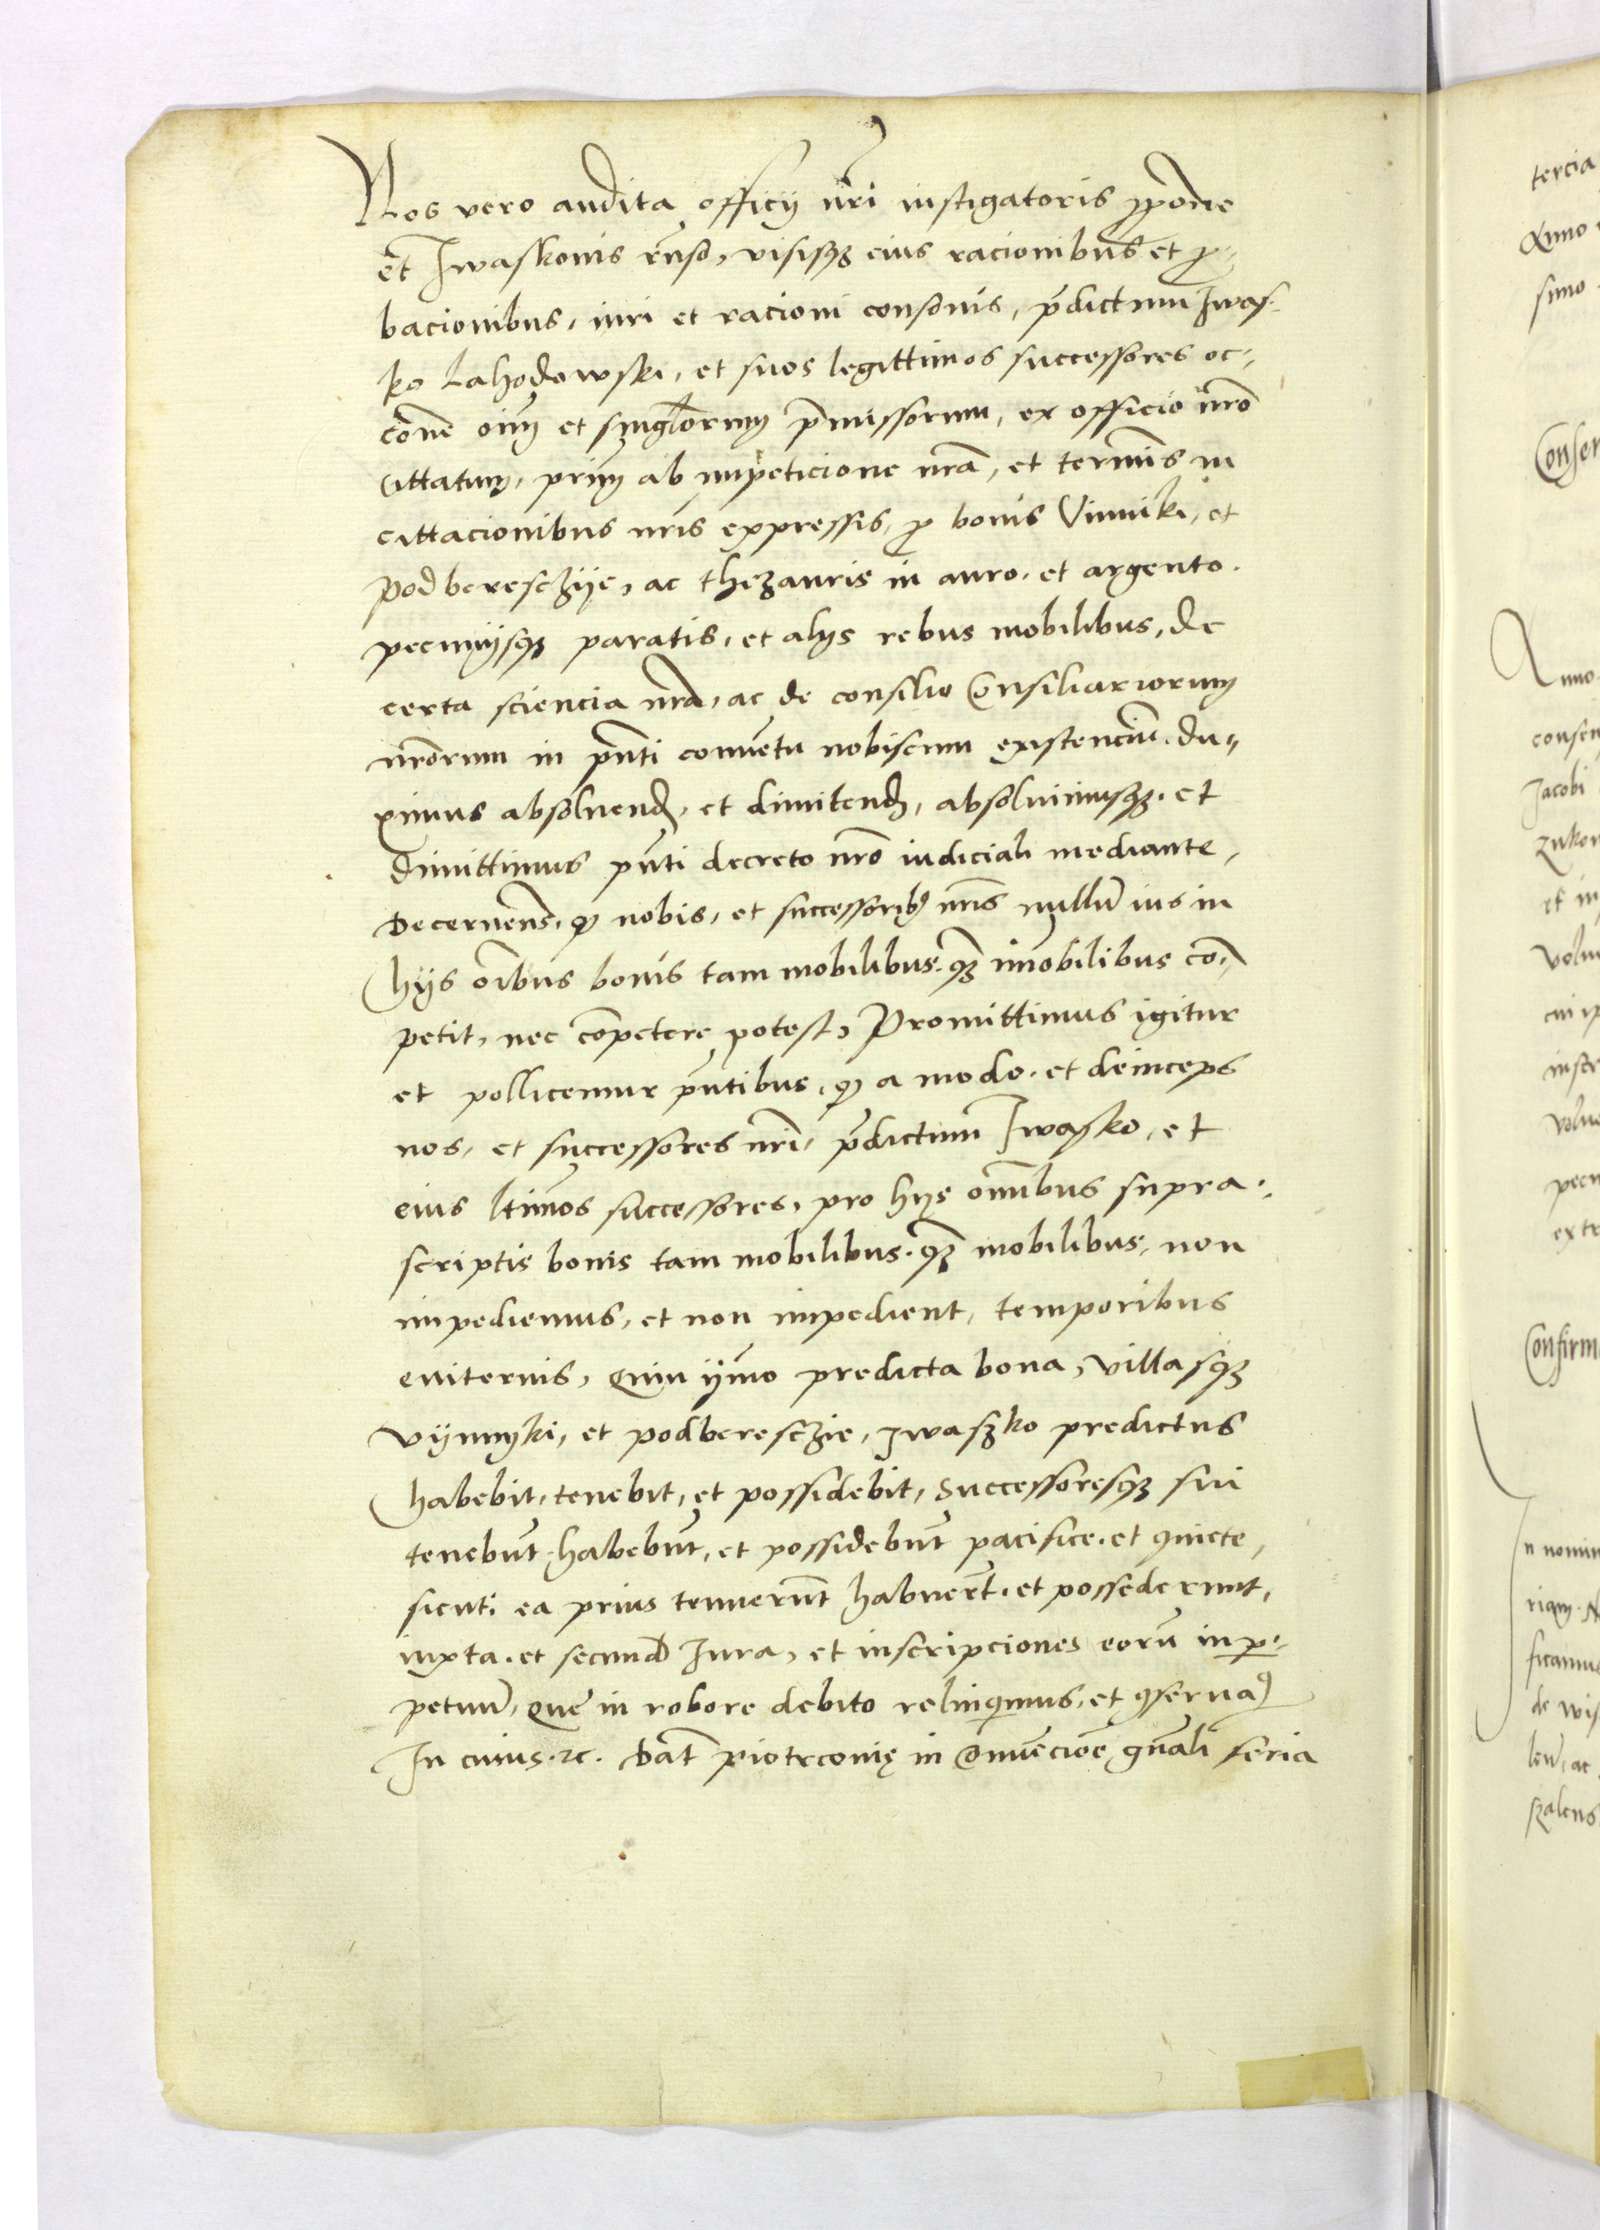 Nos vero audita officij nrī instigatoris ꝓpone
et Iwaskonis rn̄so, visisqȝ eius racionibus et ꝓ-
bacionibus, iuri et racioni consonis, p̄dictum Iwas-
ko Lahodowski, et suos legittimos successores oc-
cōne oīm et singlorum p̄missorum, ex officio nrō
cittatum, prim ab impeticione nrā, et terminis in
cittacionibus nrīs expressis, ꝓ bonis Vinniki, et
Podberesczÿe, ac thezauris in auro. et argento.
pecunijsqȝ paratis, et alijs rebus mobilibus, de
certa sciencia nrā, ac de consilio Consiliariorum
nrōrum in pn̄ti conuētu nobiscum existenciū. du-
ximus absoluend, et dimitend, absoluimusqȝ. et
dimittimus pn̄ti decreto nrō iudiciali mediante,
Decernens. ꝙ nobis, et successoribȝ nrīs nullū ius in
hijs oībus bonis tam mobilibus. qȝ im̄obilibus com-
petit, nec cōpetere potest, Promittimus igitur
et pollicemur pn̄tibus, ꝙ a modo. et deinceps
nos, et successores nrī, p̄dictum Iwasko, et
eius ltīmos successores, pro hijs omībus supra-
scriptis bonis tam mobilibus. qȝ mobilibus, non
impediemus, et non impedient, temporibus
euiternis, Quin ÿmo predicta bona, villasqȝ
Vijnnyki, et podberesczie, Iwaszko predictus
habebit, tenebit, et possidebit, Successoresqȝ sui
tenebūt. habebūt, et possidebūt pacifice. et quiete,
sicuti ea prius tenuerūt habuerūt. et possederunt,
iuxta. et secund Iura, et inscripciones eorū in ꝑ-
petuū, Que in robore debito relinqimus, et ꝯseruaꝯ
In cuius. ⁊c. Dat̄ piotrconię in Conuēcione gn̄ali feria
tercia
Anno
Anno
Jacobi